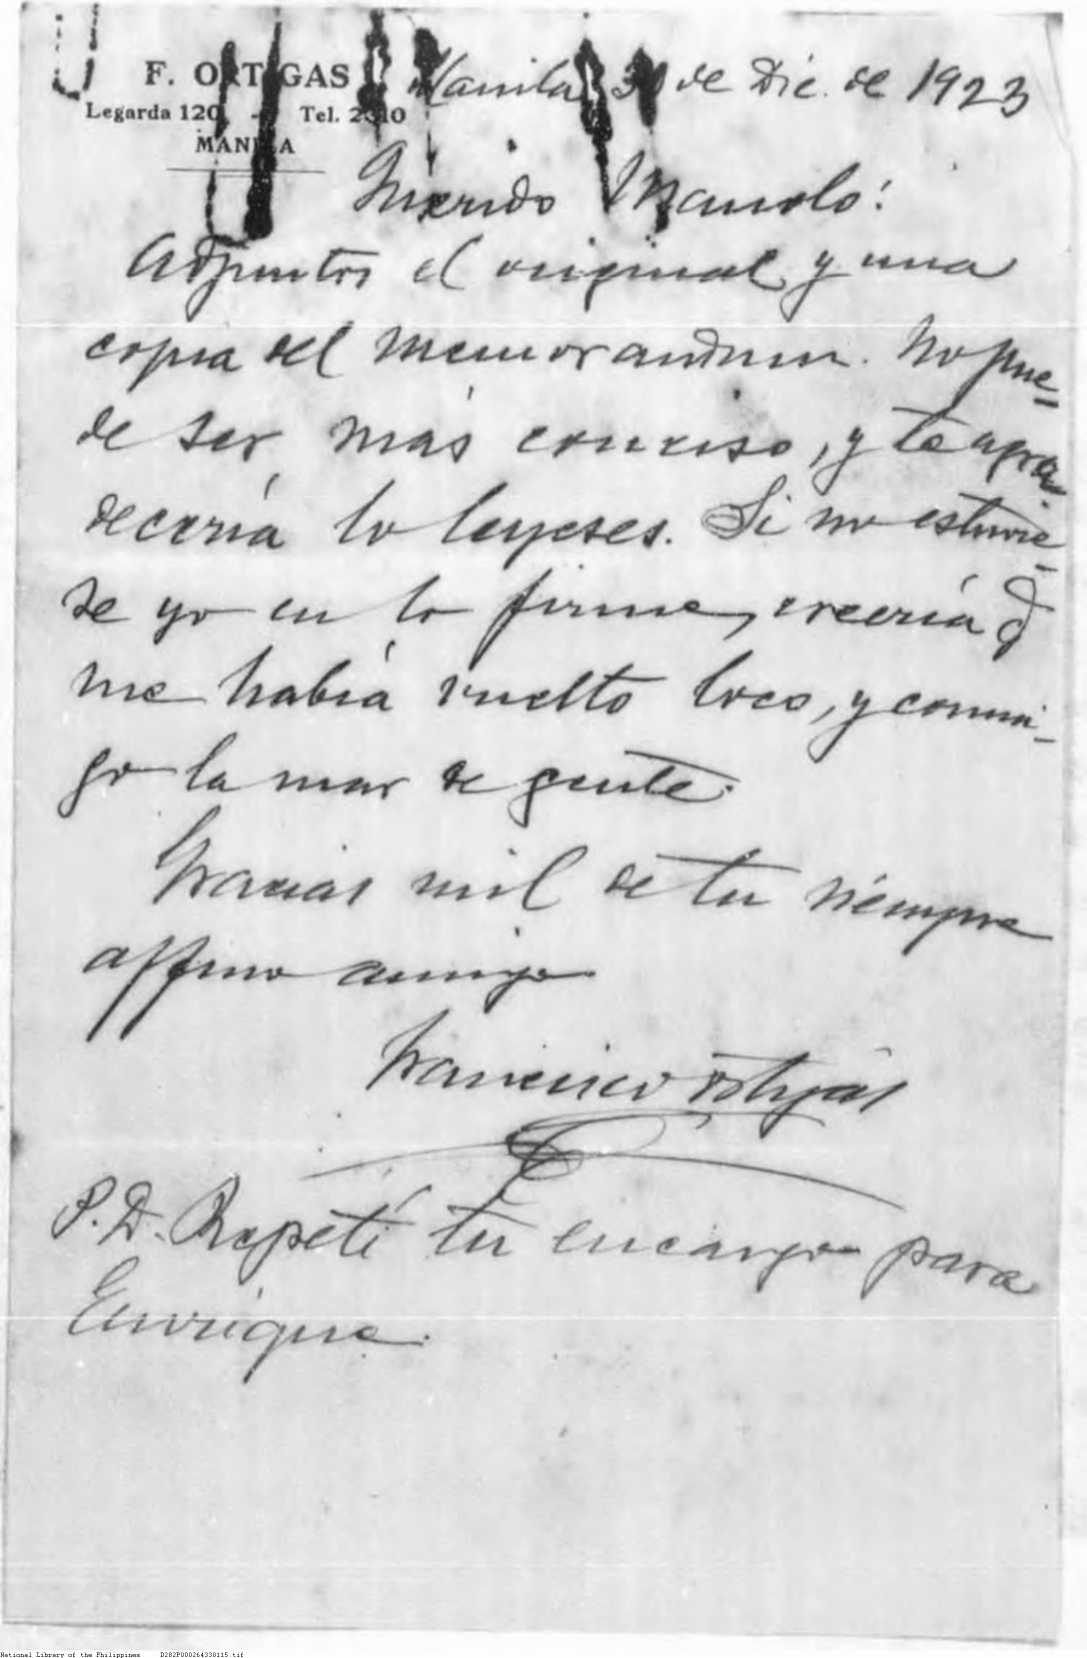 F. ORTIGAS
Manila, 30 de Dic. de 1923
Legarda 120, - Tel. 2310
MANILA
Querido Manolo:
Adjuntos el original y una
copia del memorandum. No pue-
de ser más conciso, y te agra-
decería lo leyeses. Si no estuvie-
se yo en lo firme, creería q̃
me había vuelto loco, y conmi-
go la mar de gente.
Gracias mil de tu siempre
affmo amigo
Francisco Ortigas
P.D. Repetí tu encargo para
Enrique.
National Library of the Philippines D282P000264330115.tif